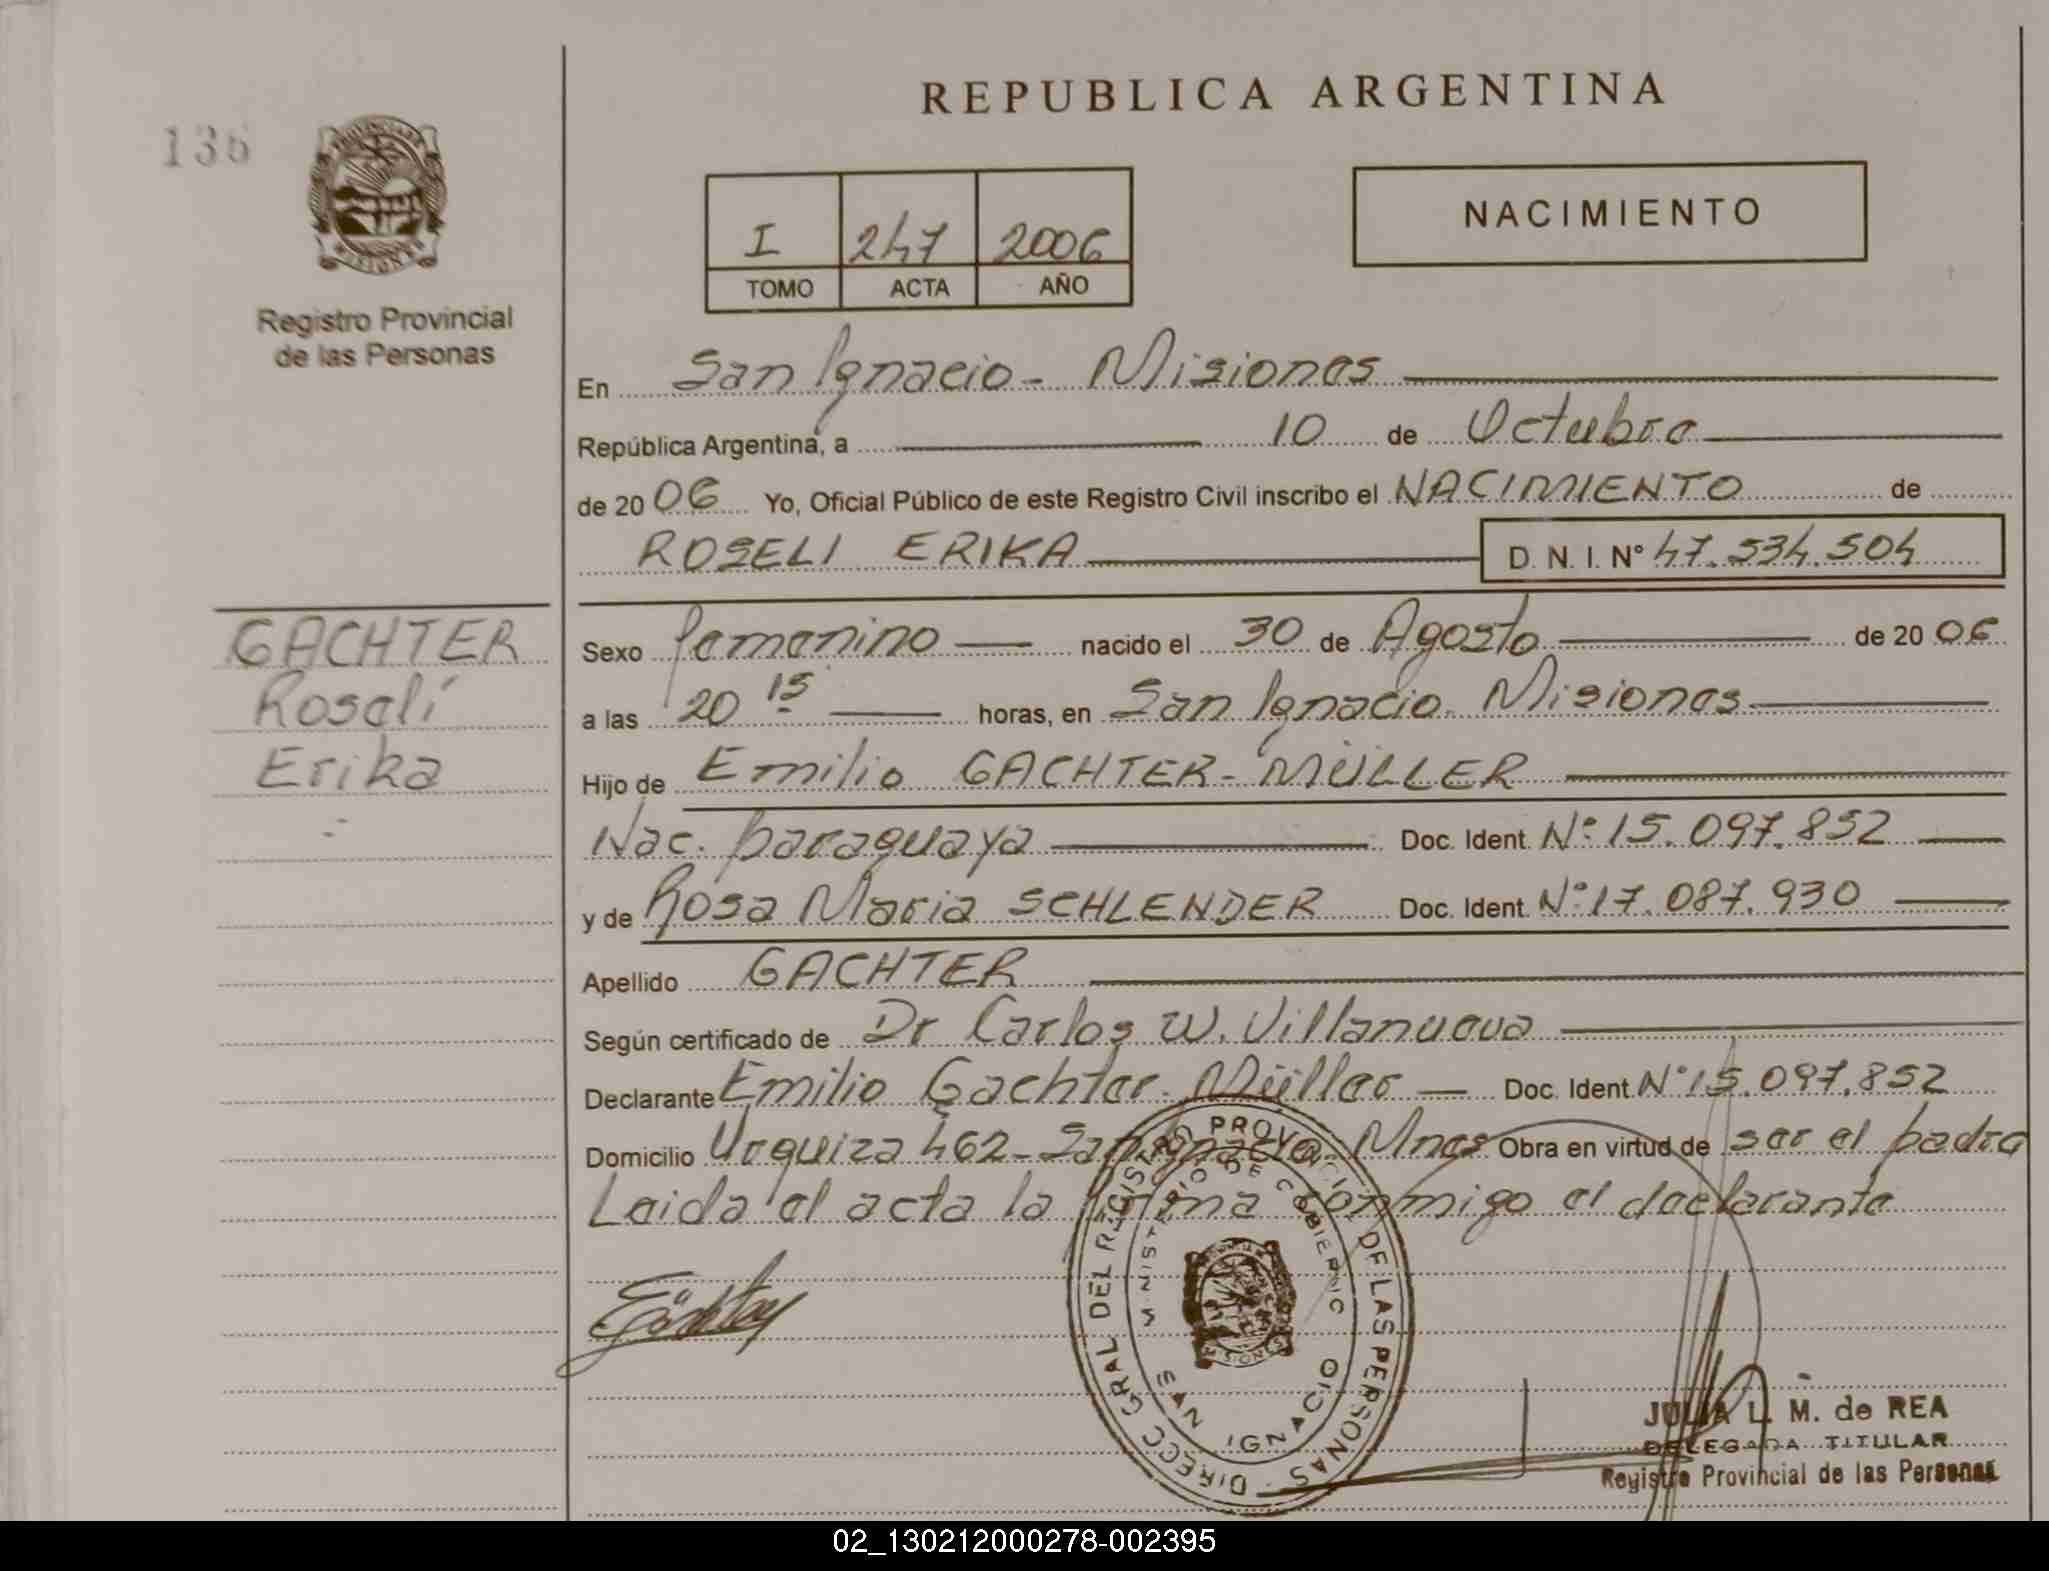 REPUBLICA ARGENTINA
136
I 247 2006
TOMO ACTA AÑO
NACIMIENTO
Registro Provincial
de las Personas
En San Ignacio - Misiones
República Argentina, a 10 de Octubre
de 2006 Yo, Oficial Público de este Registro Civil inscribo el NACIMIENTO de
ROSELI ERIKA D. N. I. N° 47.534.504
GACHTER
Roselí
Erika
Sexo femenino nacido el 30 de Agosto de 2006
a las 20 15 horas, en San Ignacio. Misiones
Hijo de Emilio GACHTER - MÜLLER
Nac. paraguaya Doc. Ident. N° 15.097.852
y de Rosa Maria SCHLENDER Doc. Ident. N° 17.087.930
Apellido GACHTER
Según certificado de Dr Carlos W. Villanueva
Declarante Emilio Gachter - Müller Doc. Ident. N° 15.097.852
Domicilio Urquiza 462 - San Ignacio - Mnes Obra en virtud de ser el padre
Leida el acta la firma conmigo el declarante
DIRECC GRAL DEL REGISTRO PROVINCIAL DE LAS PERSONAS
MINISTERIO DE GOBIERNO
SAN IGNACIO
MISIONES
JULIA L. M. de REA
DELEGADA TITULAR
Registro Provincial de las Personas
02_130212000278-002395